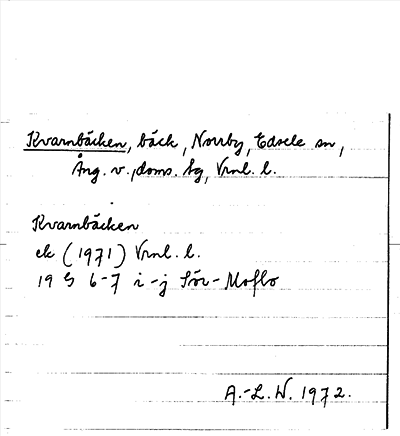 Kvarnbäcken, bäck, Norrby, Edsele sn,
Ång. v. doms. sg, Vrnl. l.
Kvarnbäcken
ek (1971) Vrnl. l.
19 G 6-7 i-j Sör-Moflo
A.-L.W. 1972.